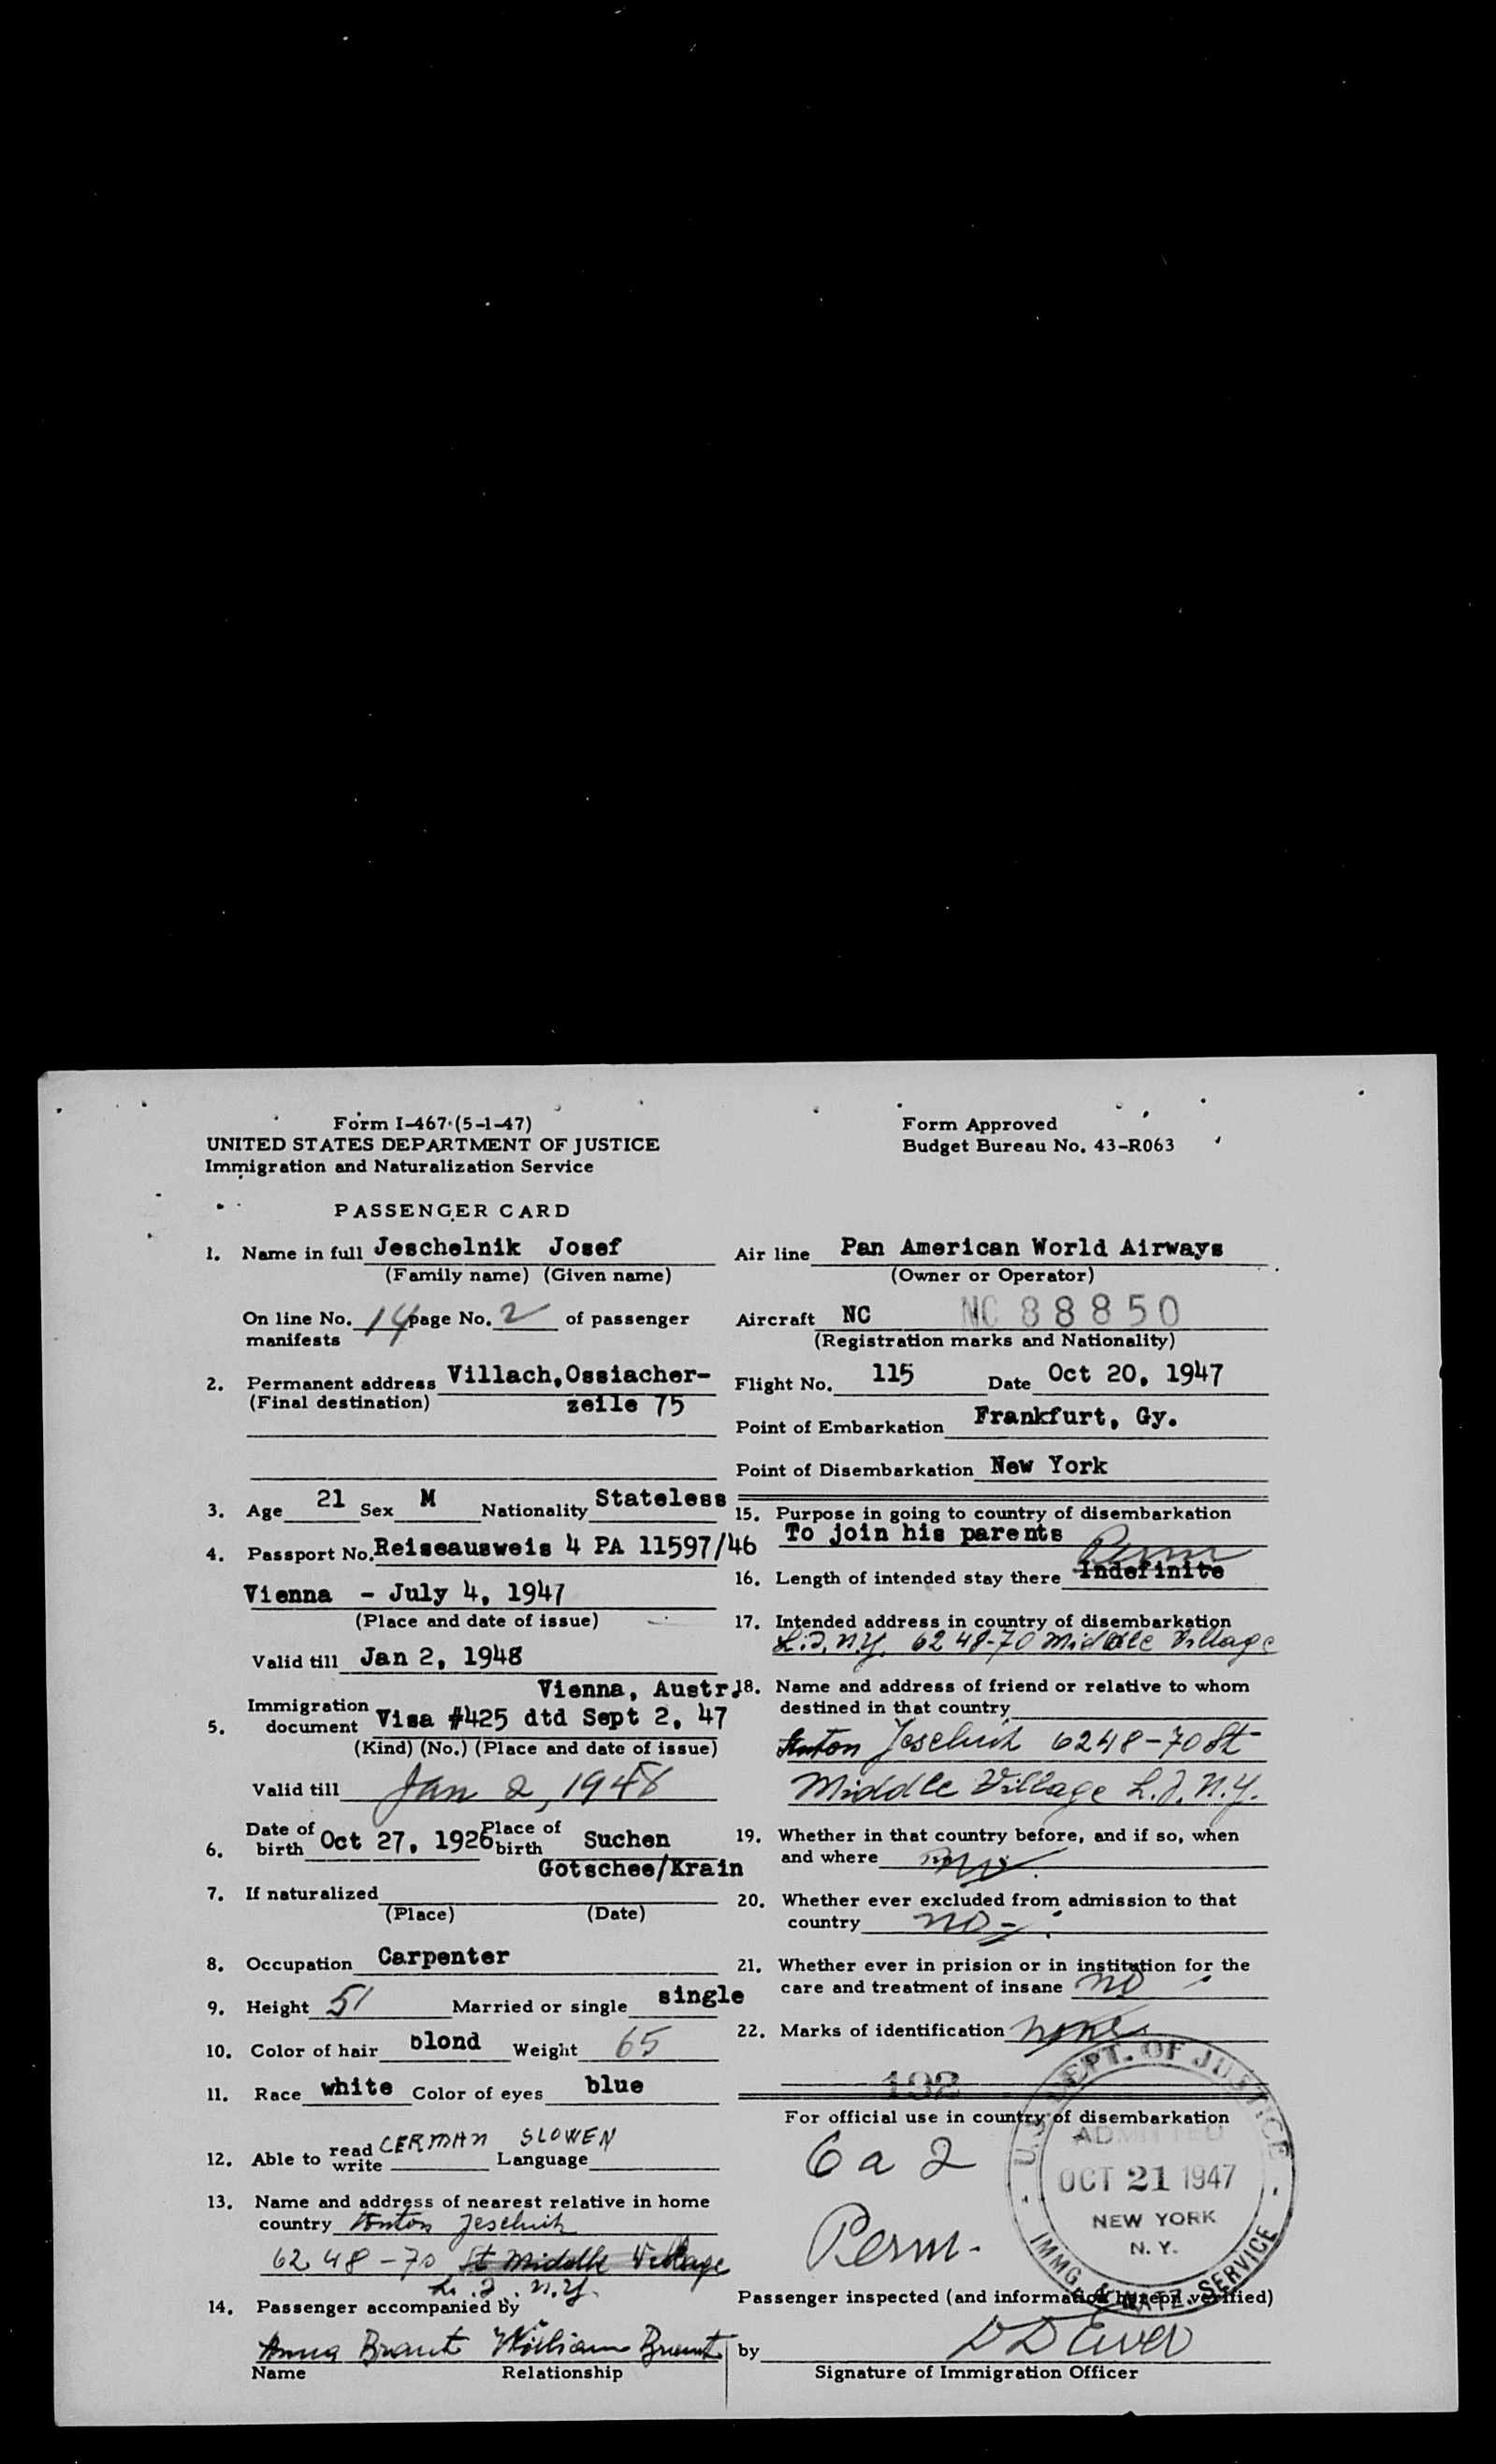 Form I-467 (5-1-47)
UNITED STATES DEPARTMENT OF JUSTICE
Immigration and Naturalization Service
Form Approved
Budget Bureau No. 43-R063
PASSENGER CARD
1. Name in full Jeschelnik Josef
(Family name) (Given name)
On line No. 14 page No. 2 of passenger
manifests
2. Permanent address Villach,Ossiacher-
(Final destination) zeile 75
3. Age 21 Sex M Nationality Stateless
4. Passport No. Reiseausweis 4 PA 11597/46
Vienna - July 4, 1947
(Place and date of issue)
Valid till Jan 2, 1948
Vienna, Austr.
5. Immigration document Visa #425 dtd Sept 2, 47
(Kind) (No.) (Place and date of issue)
Valid till Jan 2, 1948
6. Date of birth Oct 27, 1926 Place of birth Suchen
Gotschee/Krain
7. If naturalized
(Place) (Date)
8. Occupation Carpenter
9. Height 51 Married or single single
10. Color of hair blond Weight 65
11. Race white Color of eyes blue
12. Able to read write GERMAN Language SLOWEN
13. Name and address of nearest relative in home
country Anton
62 48-70 St Middle Village
L.I. N.Y.
14. Passenger accompanied by
Anna Braut William
Name Relationship
Air line Pan American World Airways
(Owner or Operator)
Aircraft NC NC 88850
(Registration marks and Nationality)
Flight No. 115 Date Oct 20, 1947
Point of Embarkation Frankfurt, Gy.
Point of Disembarkation New York
15. Purpose in going to country of disembarkation
To join his parents
Perm
16. Length of intended stay there Indefinite
17. Intended address in country of disembarkation
L.I. N.Y. 62 48-70 Middle Village
18. Name and address of friend or relative to whom
destined in that country
Anton 6248-70 St
Middle Village L.I. N.Y.
19. Whether in that country before, and if so, when
and where no
20. Whether ever excluded from admission to that
country no -
21. Whether ever in prision or in institution for the
care and treatment of insane no
22. Marks of identification none
192
For official use in country of disembarkation
6 a 2
Perm.
U.S. DEPT. OF JUSTICE
ADMITTED
OCT 21 1947
NEW YORK
N. Y.
IMMG. & NATZ. SERVICE
Passenger inspected (and information hereon verified)
by
Signature of Immigration Officer